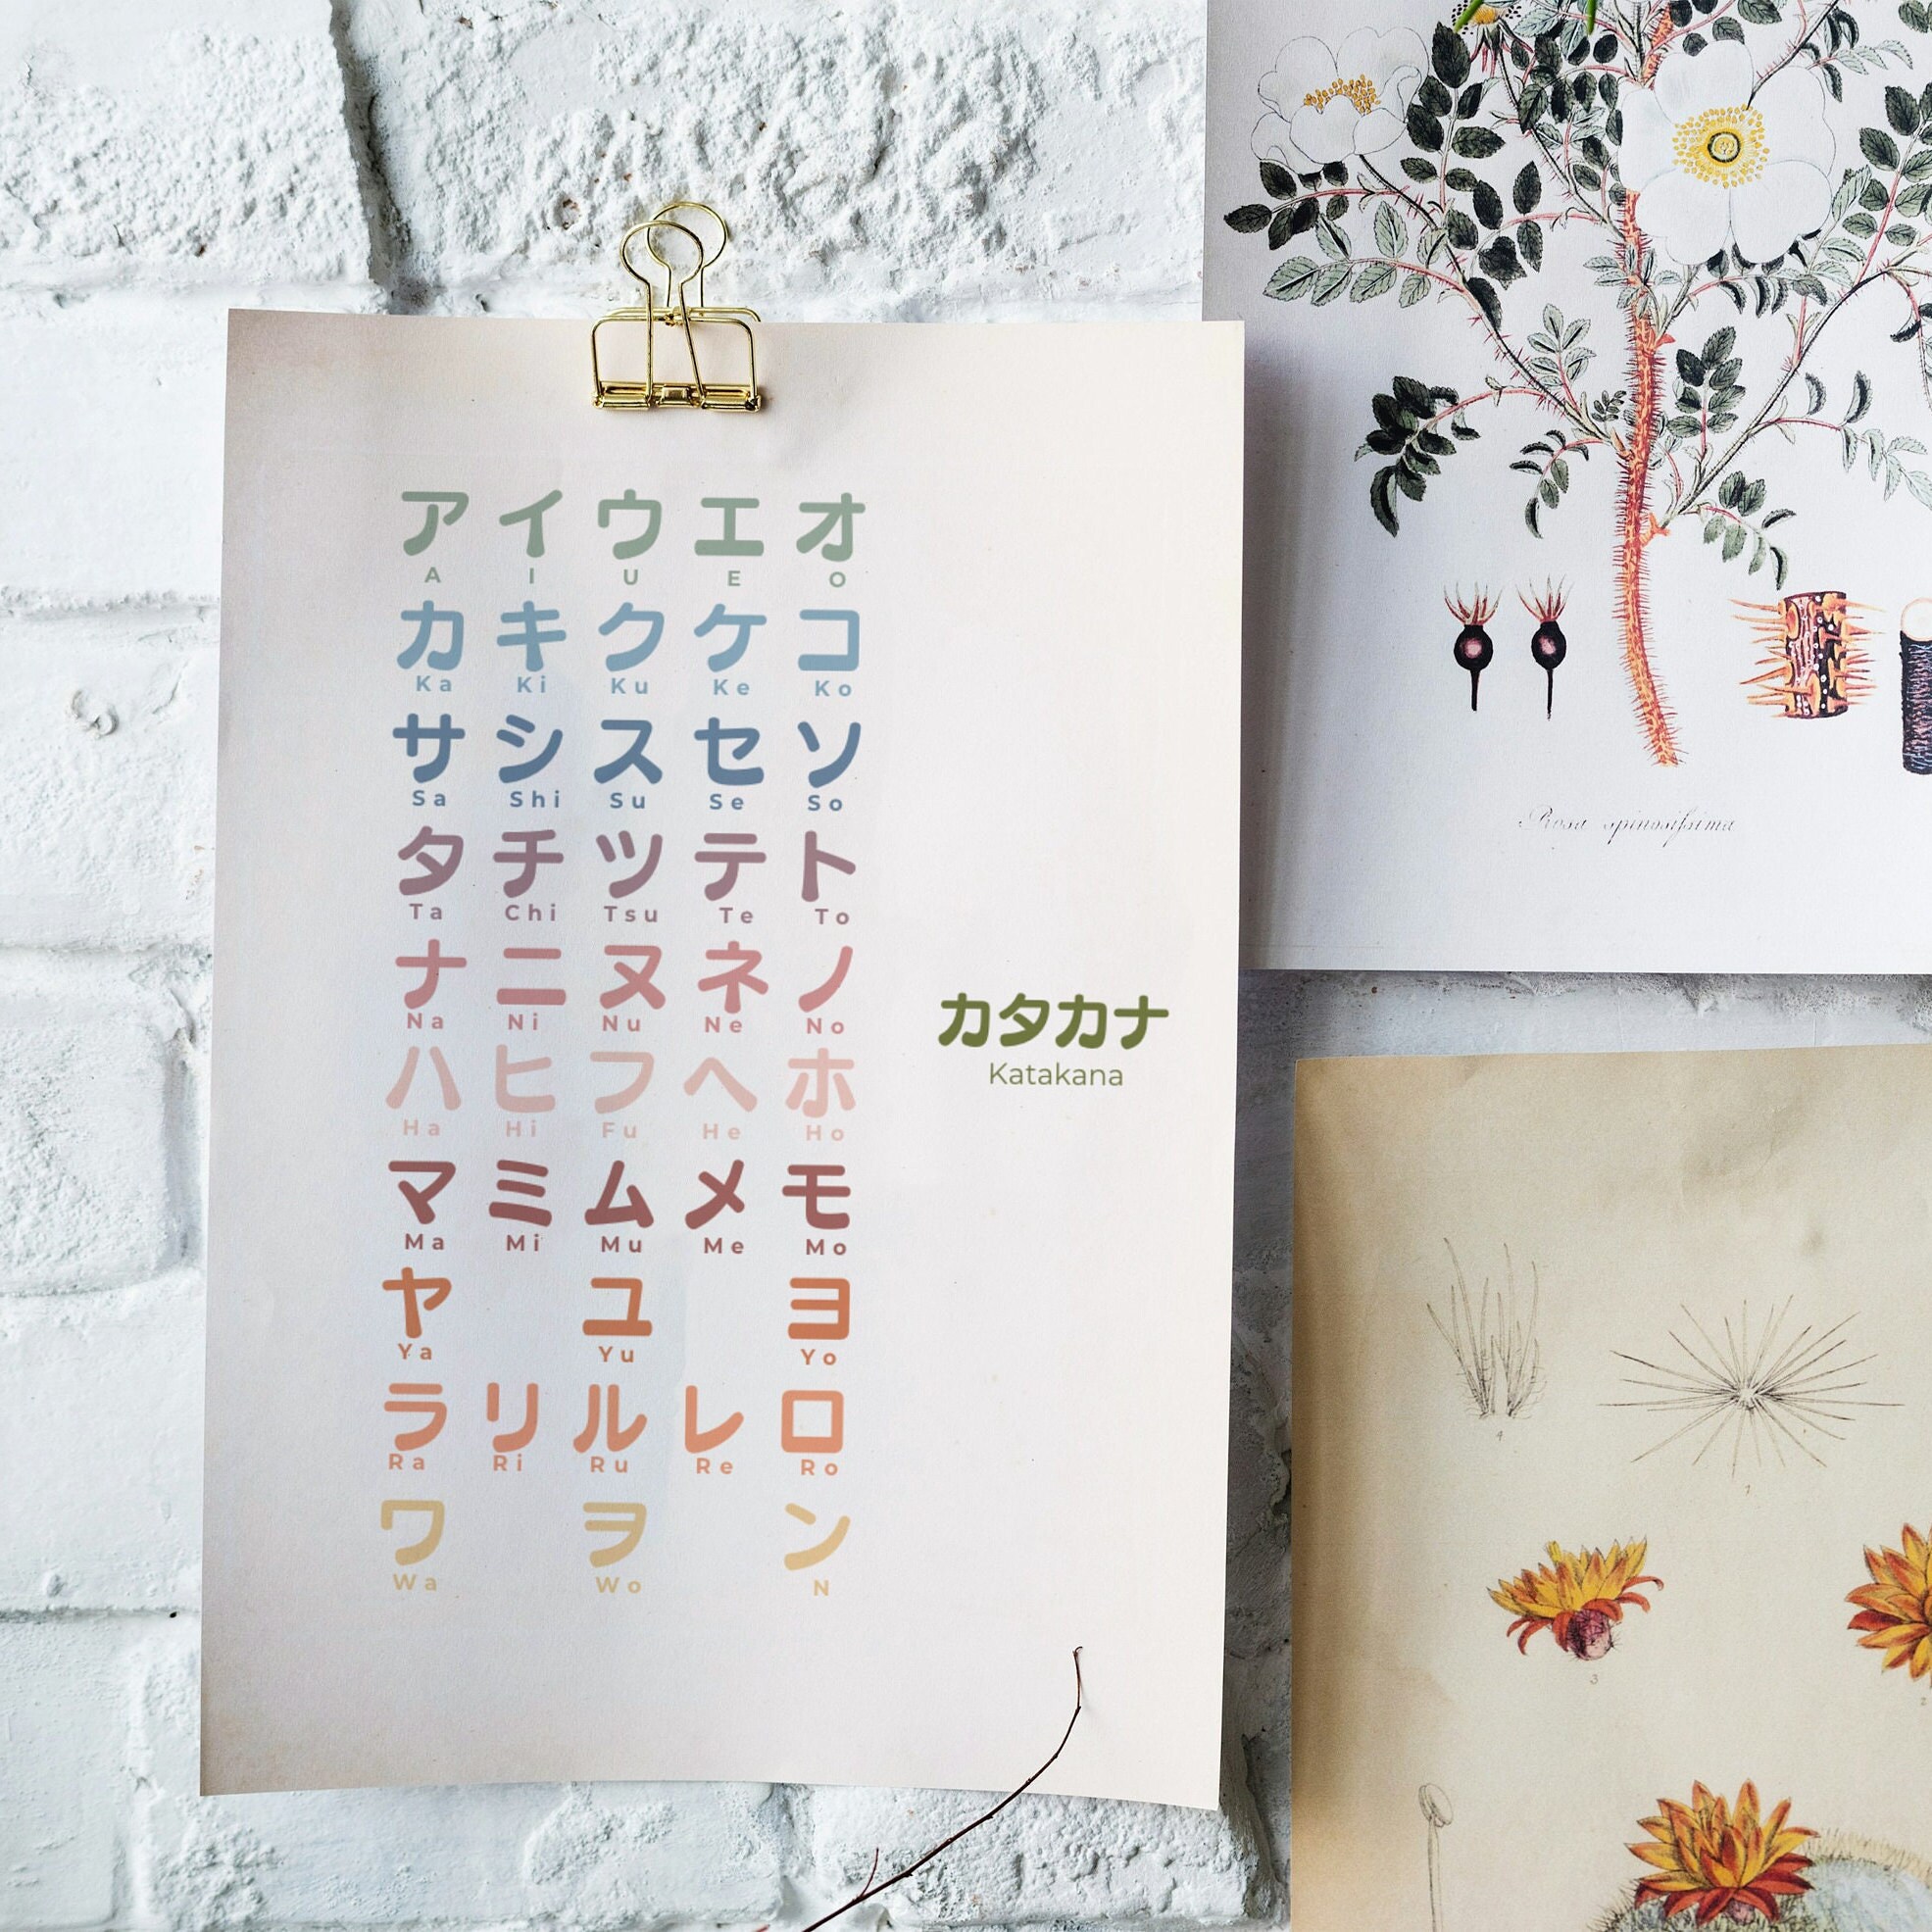 ア イ ウ エ オ
A I U E O
カ キ ク ケ コ
Ka Ki Ku Ke Ko
サ シ ス セ ソ
Sa Shi Su Se So
タ チ ツ テ ト
Ta Chi Tsu Te To
ナ ニ ヌ ネ ノ
Na Ni Nu Ne No
ハ ヒ フ ヘ ホ
Ha Hi Fu He Ho
マ ミ ム メ モ
Ma Mi Mu Me Mo
ヤ ユ ヨ
Ya Yu Yo
ラ リ ル レ ロ
Ra Ri Ru Re Ro
ワ ヲ ン
Wa Wo N
カタカナ
Katakana
Rosa spinosissima
4
1
3
2